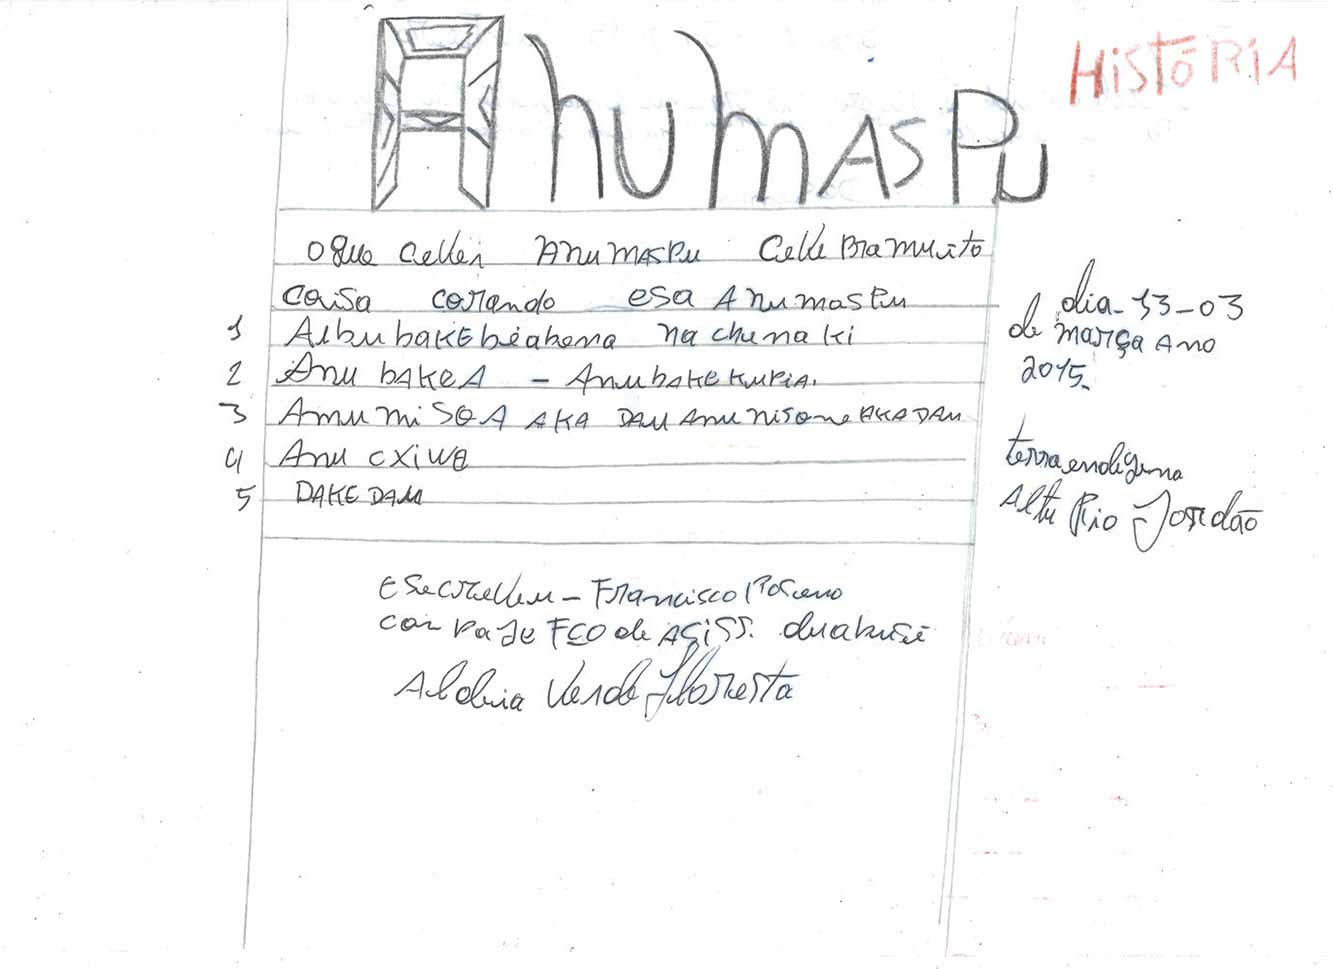 HiSTÓRiA
AnumasPu
o que celler AnumasPu Celle Pra muito
coisa corando esa AnumasPu
1 Aibu bake beabena na chuna ki
2 Anu bakeA - Anu bake kuria.
3 Anu miSOA AKA DAU Anu nisone AKA DAU
4 Anu cxiwe
5 DAKE DAU
dia-13-03
de março Ano
2015.
terra endigena
Altu Rio Jordão
Francisco
FCO de ASiSS.
Aldeia Verde Floresta